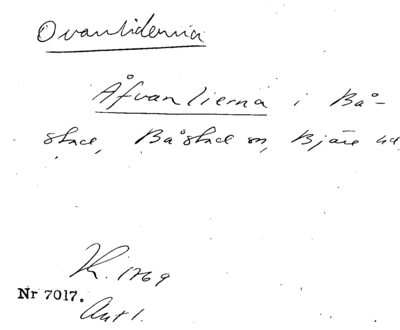 Ovanliderna
Åfvanlierna i Bå-
stad, Båstad sn, Bjäre hd.
1769
Nr 7017.
Akt 1.